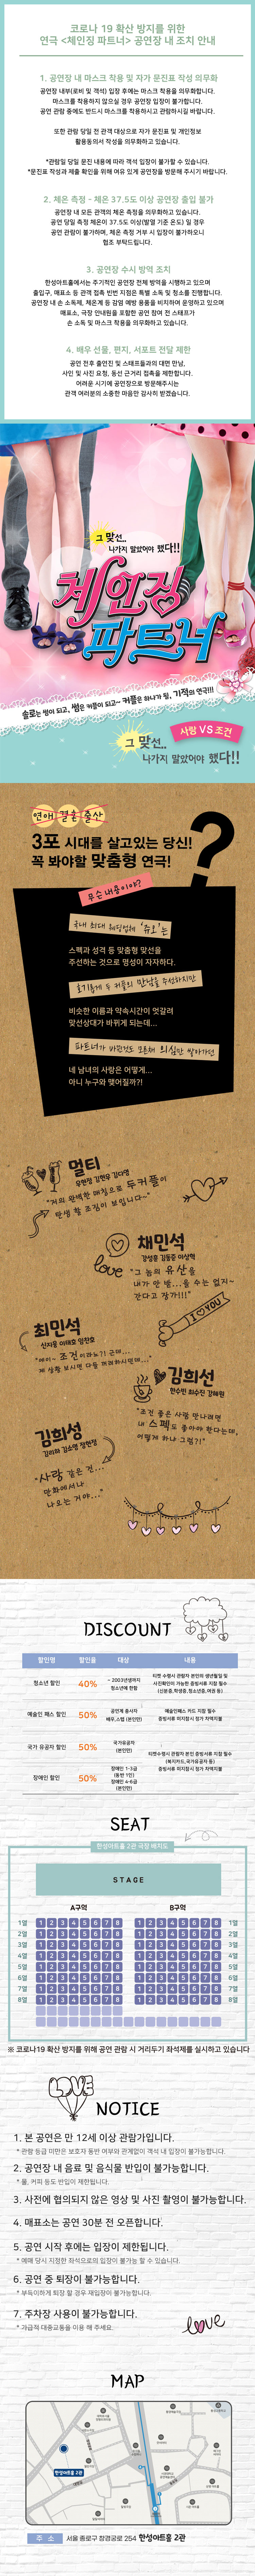 코로나 19 확산 방지를 위한
연극 <체인징 파트너> 공연장 내 조치 안내
1. 공연장 내 마스크 착용 및 자가 문진표 작성 의무화
공연장 내부(로비 및 객석) 입장 후에는 마스크 착용을 의무화합니다.
마스크를 착용하지 않으실 경우 공연장 입장이 불가합니다.
공연 관람 중에도 반드시 마스크를 착용하시고 관람하시길 바랍니다.
또한 관람 당일 전 관객 대상으로 자가 문진표 및 개인정보
활용동의서 작성을 의무화하고 있습니다.
*관람일 당일 문진 내용에 따라 객석 입장이 불가할 수 있습니다.
*문진표 작성과 제출 확인을 위해 여유 있게 공연장을 방문해 주시기 바랍니다.
2. 체온 측정 - 체온 37.5도 이상 공연장 출입 불가
공연장 내 모든 관객의 체온 측정을 의무화하고 있습니다.
공연 당일 측정 체온이 37.5도 이상(발열 기준 온도) 일 경우
공연 관람이 불가하며, 체온 측정 거부 시 입장이 불가하오니
협조 부탁드립니다.
3. 공연장 수시 방역 조치
한성아트홀에서는 주기적인 공연장 전체 방역을 시행하고 있으며
출입구, 매표소 등 관객 접촉 빈번 지점은 특별 소독 및 청소를 진행합니다.
공연장 내 손 소독제, 체온계 등 감염 예방 용품을 비치하여 운영하고 있으며
매표소, 극장 안내원을 포함한 공연 참여 전 스태프가
손 소독 및 마스크 착용을 의무화하고 있습니다.
4. 배우 선물, 편지, 서포트 전달 제한
공연 전후 출연진 및 스태프들과의 대면 만남,
사인 및 사진 요청, 동선 근거리 접촉을 제한합니다.
어려운 시기에 공연장으로 방문해주시는
관객 여러분의 소중한 마음만 감사히 받겠습니다.
그 맞선..
나가지 말았어야 했다!!
체인징
파트너
솔로는 썸이 되고, 썸은 커플이 되고~ 커플은 하나가 될, 기적의 연극!!
사랑 VS 조건
그 맞선..
나가지 말았어야 했다!!
연애 결혼 출산
3포 시대를 살고있는 당신!
꼭 봐야할 맞춤형 연극!
?
무슨 내용이야?
국내 최대 웨딩업체 '듀오'는
스펙과 성격 등 맞춤형 맞선을
주선하는 것으로 명성이 자자하다.
호기롭게 두 커플의 만남을 주선하지만
비슷한 이름과 약속시간이 엇갈려
맞선상대가 바뀌게 되는데...
파트너가 바뀐것도 모른채 의심만 쌓아가던
네 남녀의 사랑은 어떻게...
아니 누구와 맺어질까?!
멀티
우현정 김현우 김다영
"거의 완벽한 매칭으로 두커플이
탄생 할 조짐이 보입니다~"
채민석
강성훈 김동준 이상혁
"그 놈의 유산을
내가 안 받...을 수는 없지~
간다고 장가!!!"
love
I ♡ YOU
최민석
신지웅 이태호 임찬호
김희선
한수민 최수진 강혜원
"조건 좋은 사람 만나려면
내 스펙도 좋아야 한다는데,
어떻게 하나 그럼?!"
김희성
김미라 김소영 정현정
"사랑 같은 건...
만화에서나
나오는 거야..."
DISCOUNT
할인명 할인율 대상 내용
청소년 할인 40% ~ 2003년생까지 청소년에 한함 티켓 수령시 관람자 본인의 생년월일 및 사진확인이 가능한 증빙서류 지참 필수 (신분증,학생증,청소년증,여권 등)
예술인 패스 할인 50% 공연계 종사자 배우,스텝 (본인만) 예술인패스 카드 지참 필수 증빙서류 미지참시 정가 차액지불
국가 유공자 할인 50% 국가유공자 (본인만)
티켓수령시 관람자 본인 증빙서류 지참 필수
(복지카드,국가유공자 등)
증빙서류 미지참시 정가 차액지불
장애인 할인 50% 장애인 1-3급 (동반 1인) 장애인 4-6급 (본인만)
SEAT
한성아트홀 2관 극장 배치도
STAGE
A구역 B구역
1열 1 2 3 4 5 6 7 8 1 2 3 4 5 6 7 8 1열
2열 1 2 3 4 5 6 7 8 1 2 3 4 5 6 7 8 2열
3열 1 2 3 4 5 6 7 8 1 2 3 4 5 6 7 8 3열
4열 1 2 3 4 5 6 7 8 1 2 3 4 5 6 7 8 4열
5열 1 2 3 4 5 6 7 8 1 2 3 4 5 6 7 8 5열
6열 1 2 3 4 5 6 7 8 1 2 3 4 5 6 7 8 6열
7열 1 2 3 4 5 6 7 8 1 2 3 4 5 6 7 8 7열
8열 1 2 3 4 5 6 7 8 1 2 3 4 5 6 7 8 8열
※ 코로나19 확산 방지를 위해 공연 관람 시 거리두기 좌석제를 실시하고 있습니다
LOVE
NOTICE
1. 본 공연은 만 12세 이상 관람가입니다.
* 관람 등급 미만은 보호자 동반 여부와 관계없이 객석 내 입장이 불가능합니다.
2. 공연장 내 음료 및 음식물 반입이 불가능합니다.
* 물, 커피 등도 반입이 제한됩니다.
3. 사전에 협의되지 않은 영상 및 사진 촬영이 불가능합니다.
4. 매표소는 공연 30분 전 오픈합니다.
5. 공연 시작 후에는 입장이 제한됩니다.
* 예매 당시 지정한 좌석으로의 입장이 불가능 할 수 있습니다.
6. 공연 중 퇴장이 불가능합니다.
* 부득이하게 퇴장 할 경우 재입장이 불가능합니다.
7. 주차장 사용이 불가능합니다.
* 가급적 대중교통을 이용 해 주세요.
love
MAP
한성아트홀 2관
주 소 서울 종로구 창경궁로 254 한성아트홀 2관